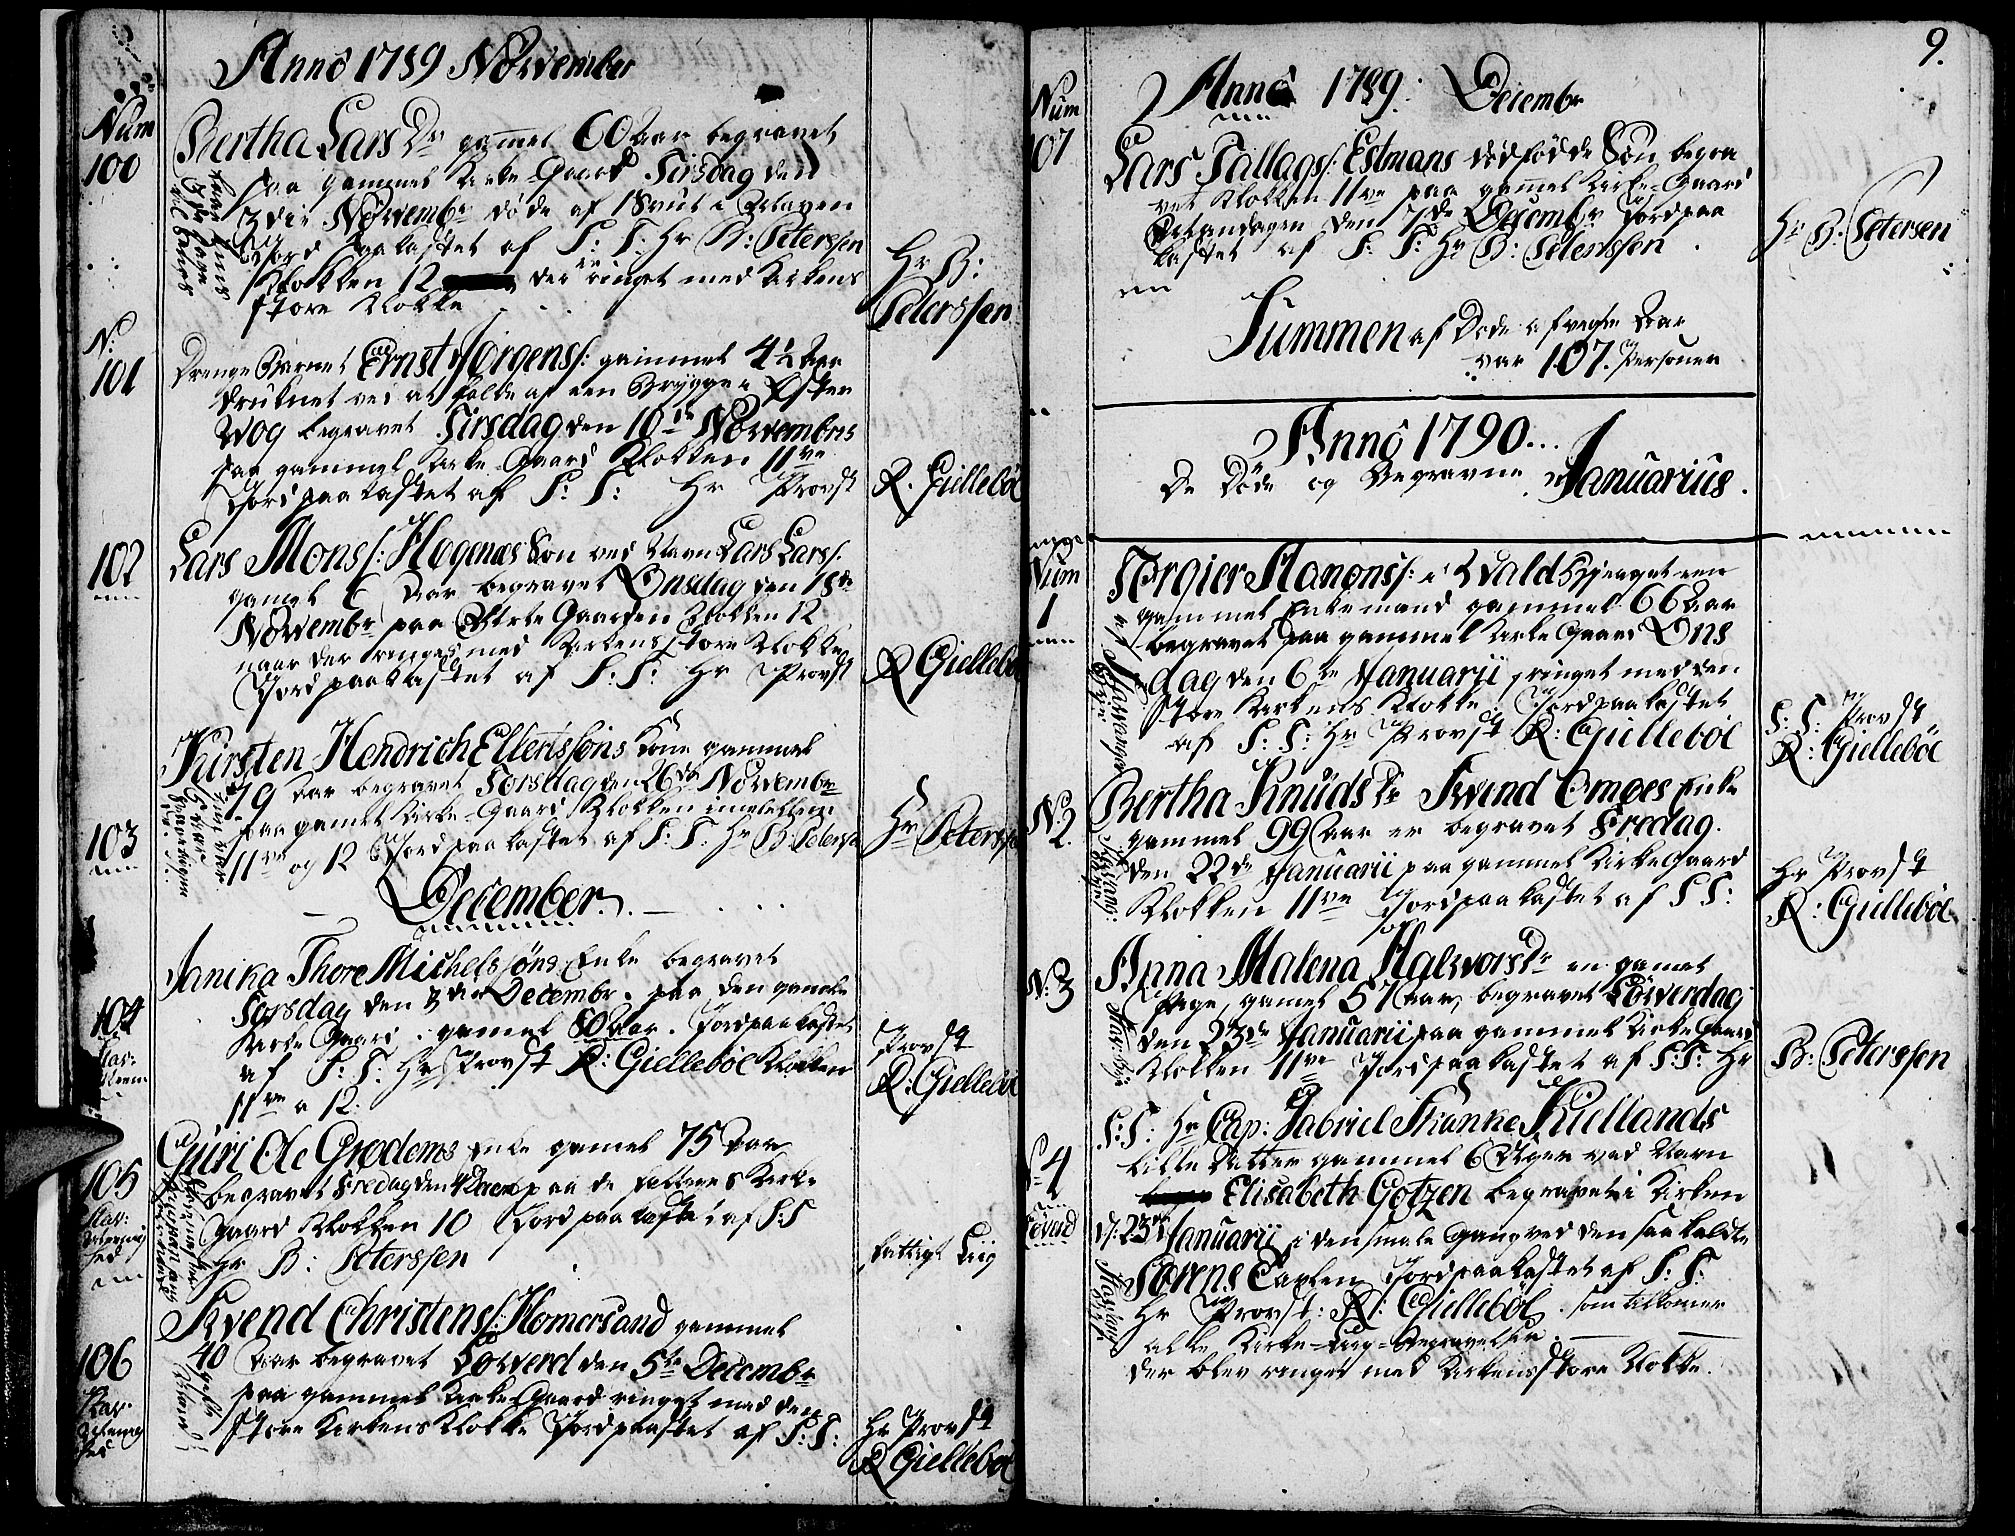 Anno 1789 November
Num
100
Bertha Lars Dr gamel 60 Aar begravet
paa gammel Kirke-Gaard Tirsdag den
3die Novembr døde af
Jord paakastet af S: T: Hr B: Peterssen
Klokken 12 der ringet med Kirkens
store Klokke
Hr B:
Peterssen
N:
101
Drenge Barnet Ernst Jörgens: gammel 4½ Aar
druknet ved at falde af een Brygge i Østen
Wog begravet Tirsdag den 10de Novembris
paa gammel Kirke-Gaard Klokken 11ve
Jord paakastet af S: T: Hr Provst
R. Gilleböl
102
Lars Mons: Hogenæs Søn ved Navn Lars Lars:
gamel 6 Aar begravet Onsdag den 18de
Novembr paa Gaarden Klokken 12
naar der ringes med Kirkens store Klokke
Jord paakastet af S: T: Hr Provst
R Giellebøl
Kirsten Hendrich Ellertssøns Kone gammel
79 Aar begravet Torsdag den 26de Novembr
paa gamel Kirke-Gaard Klokken imellem
11ve og 12 Jord paakastet af S: T: Hr B: Peterssen
103
Hr Peterssen
December.
Janika Thore Michelssöns Enke begravet
Torsdag den 3die Decembr. paa den gamle
Kirke Gaard. gamel 80 Aar. Jord paakastet
af S: T: Hr Provst R: Gielleböl Klokken
11ve a 12.
104
Provst
R: Giellebøl
Guri Ole Grødems Enke gamel 75 Aar
begravet Fredag den 4 Decem paa de fattiges Kirke
Gaard Klokken 10 Jord paakastet af S: T
Hr B: Peterssen
105
fattigt Liig
Svend Christens: Homersand gammel
40 Aar begravet Löverd den 5te Decembr
paa gammel Kirke Gaard ringet med den
store Kirkens Klokke Jord paastet af S: T:
106
Hr Provst
R Giellebøl
9.
Anno 1789. Decembr
Num
107
Lars Tallags: Estmans dødfødde Søn begra
vet Klokken 11ve paa gammel Kirke-Gaard
den 17de Decembr Jord paa
kastet af S: T: Hr B: Peterssen.
Hr B: Petersen
Summen af Døde afvigte Aar
var 107. Personer
Anno 1790...
De Døde og Begravne Januarius.
Num
1
Törgier Hanons: i Wald Bierget een
gammel Enkemand gammel 66 Aar
begravet paa gammel Kirke Gaard Ons
dag den 6te Januarii, ringet med den
store Kirkens Klokke, Jord paakastet
af S: T: Hr Provst R: Giellebøl
S: T: Provst
R: Giellebøl
N:
2.
Bertha Knuds Dr Svend Omoes Enke
gammel 99 Aar er begravet Fredag.
den 22de Januarii paa gammel Kirke Gaard
Klokken 11ve Jord paakastet af S T:
Hr Provst
R: Giellebøl
N: 3
Anna Malena Halvors Dr en gamel
Pige, gamel 57 Aar, begravet Löverdag
den 23de Januarii paa gammel Kirke Gaard
Klokken 11ve Jord paakastet af S: T: Hr
B: Peterssen
N 4
S: T: Hr Cap: Gabriel Skanke Kiellands
lille Datter gammel 6 Uger ved Navn
Elisabeth Gotzen begravet i Kirken
d: 23de Januarii i den smale Gang ved den saa kaldte
Sörens Tavlen Jord paakastet af S: T:
Hr Provst: R: Giellebøl. som tilkomer
alle Kirke-Liig-Begravelser.
der blev ringet med Kirkens store Klokke.